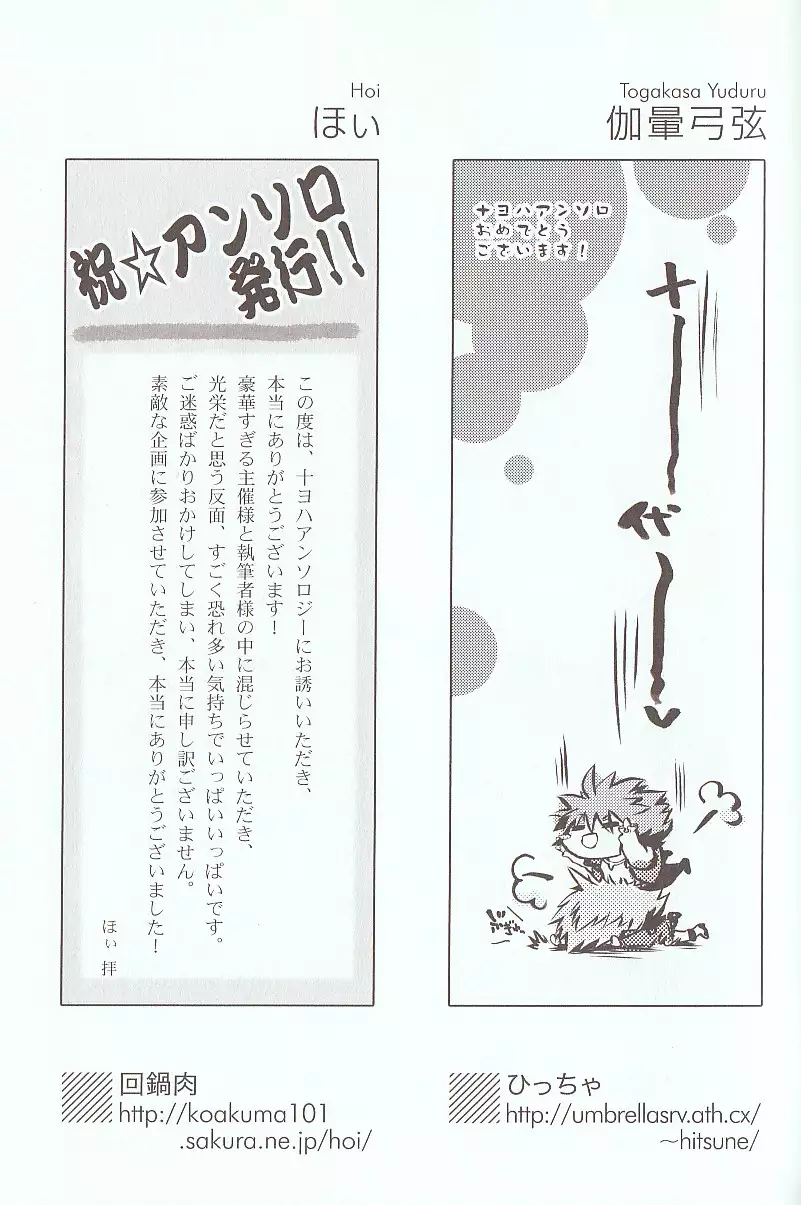 Togakasa Yuduru
伽暈弓弦
十ヨハアンソロ
おめでとう
ございます！
十――代――
ひっちゃ
http://umbrellasrv.ath.cx/
～hitsune/
Hoi
ほぃ
祝☆アンソロ
発行!!
この度は、十ヨハアンソロジーにお誘いいただき、
本当にありがとうございます！
豪華すぎる主催様と執筆者様の中に混じらせていただき、
光栄だと思う反面、すごく恐れ多い気持ちでいっぱいいっぱいです。
ご迷惑ばかりおかけしてしまい、本当に申し訳ございません。
素敵な企画に参加させていただき、本当にありがとうございました！
ほぃ 拝
回鍋肉
http://koakuma101
.sakura.ne.jp/hoi/